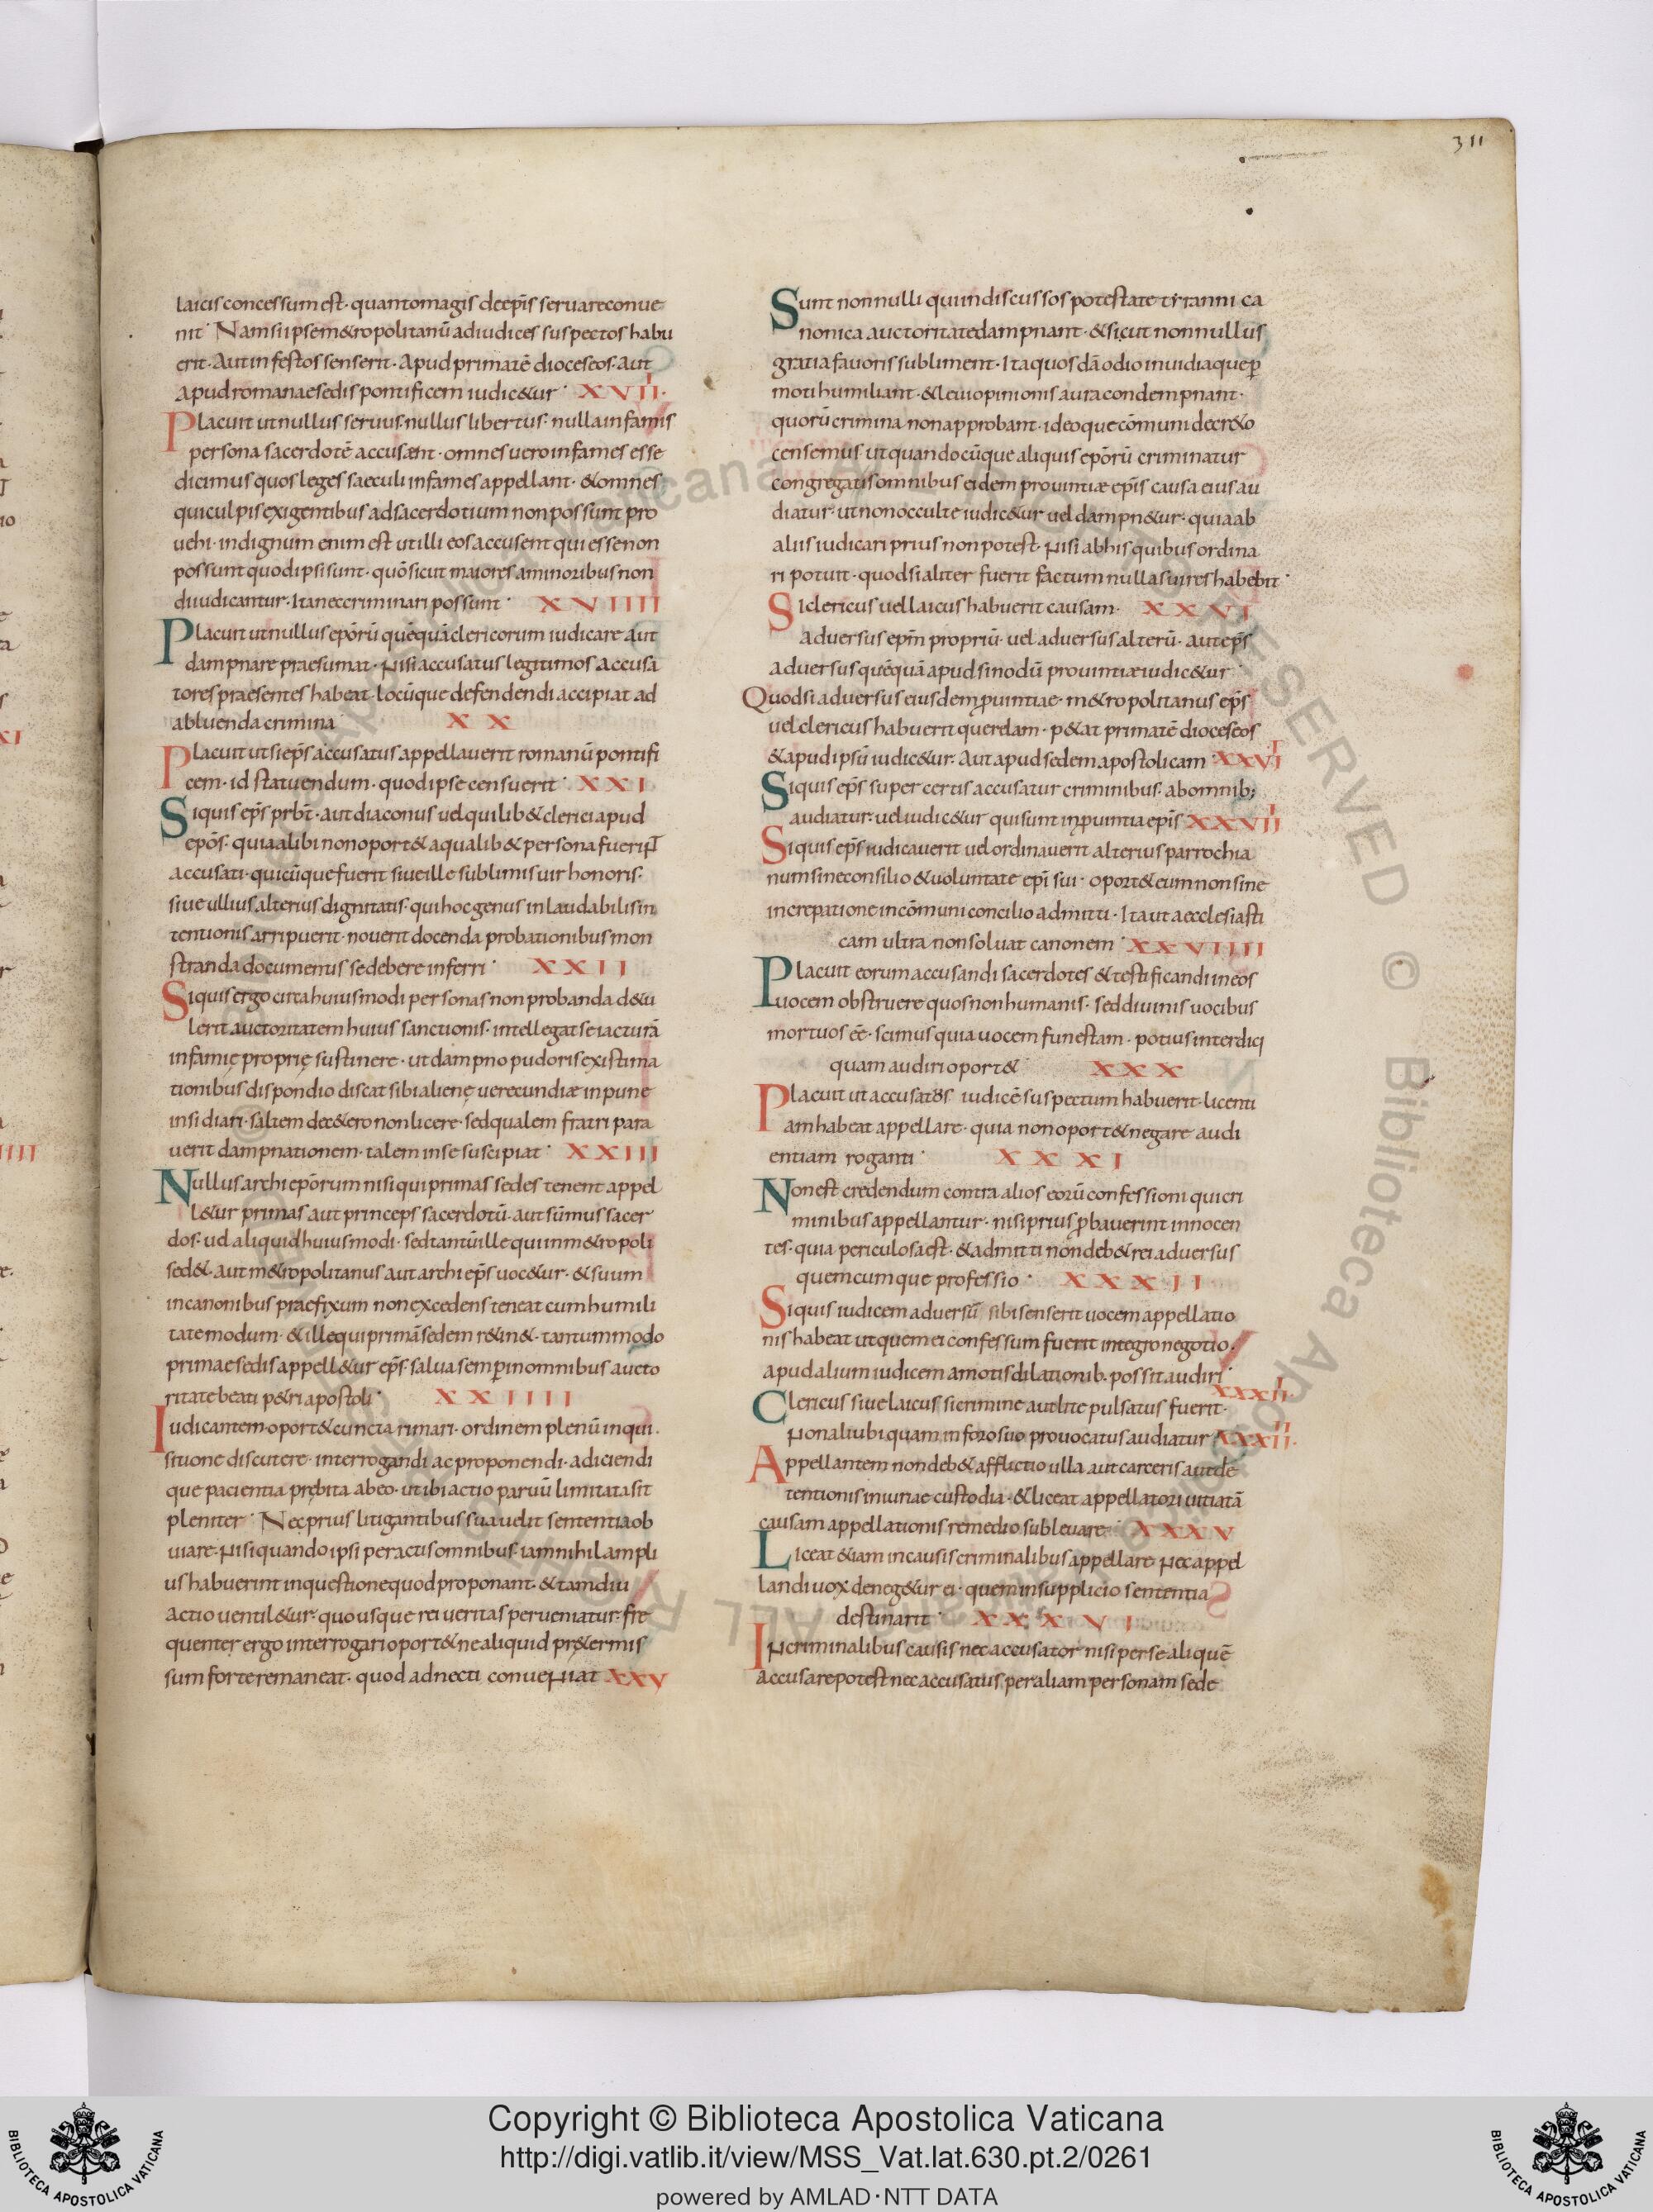 311
laicis concessum est · quanto magis de ep̄is servare conve
nit · Nam si ipse m&ropolitanū ad iudices suspectos habu
erit · Aut infestos senserit · Apud primatē dioceseos · Aut
Apud romanae sedis pontificem iudic&ur · XVIII ·
Placuit ut nullus servus · nullus libertus · nulla infamis
persona sacerdotē accusent · omnes vero infames esse
dicimus quos leges saeculi infames appellant · & omnes
qui culpis exigentibus ad sacerdotium non possunt pro
vehi · indignum enim est ut illi eos accusent qui esse non
possunt quod ipsi sunt · quō sicut maiores a minoribus non
diiudicantur · Ita nec criminari possunt · XVIIII
Placuit ut nullus epōrū quēquā clericorum iudicare aut
dampnare praesumat · Nisi accusatus legitimos accusa
tores praesentes habeat · locūque defendendi accipiat ad
abluenda crimina · XX
Placuit ut si ep̄s accusatus appellaverit romanū pontifi
cem · id statuendum · quod ipse censuerit · XXI
Si quis ep̄s prb̄t · aut diaconus vel quilib& clerici apud
epōs · quia alibi non oport& a qualib& persona fuerint
accusati · quicūque fuerit sive ille sublimis vir honoris ·
sive ullius alterius dignitatis · qui hoc genus inlaudabilis in
tentionis arripuerit · noverit docenda probationibus mon
stranda documentis se debere inferri · XXII
Si quis ergo circa huiusmodi personas non probanda d&u
lerit auctoritatem huius sanctionis · intellegat se iacturā
infamię proprię sustinere · ut dampno pudoris existima
tionibus dispondio discat sibi alienę verecundiæ inpune
insidiari · saltem dec&ero non licere · sed qualem fratri para
verit dampnationem · talem in se suscipiat · XXIII
Nullus archiepōrum nisi qui primas sedes tenent appel
l&ur primas aut princeps sacerdotū · aut sūmus sacer
dos · ud aliquid huiusmodi · sed tantū ille qui in m&ropoli
sed& · aut m&ropolitanus aut archiep̄s voc&ur · & suum
in canonibus praefixum non excedens teneat cum humili
tate modum · & ille qui primā sedem r&in& · tantummodo
primae sedis appell&ur ep̄s · salva semp̄ in omnibus aucto
ritate beati p&ri apostoli · XXIIII
Iudicantem oport& cuncta rimari · ordinem plenū inqui
sitione discutere · interrogandi ac proponendi · adiciendi
que pacientia prębita ab eo · ut ibi actio parvū limitata sit
pleniter · Nec prius litigantibus sua velit sententia ob
viare · Nisi quando ipsi peractis omnibus · iam nihil ampli
us habuerint in questione quod proponant · & tam diu
actio ventil&ur · quousque rei veritas perveniatur · fre
quenter ergo interrogari oport& ne aliquid pr&ermis
sum forte remaneat · quod adnecti conveniat XXV
Sunt nonnulli qui indiscussos potestate tyranni ca
nonica auctoritate dampnant · & sicut nonnullus
gratia favoris subliment · Ita quosdā odio invidiaque p̄
moti humiliant · & levi opinionis aura condempnant ·
quorū crimina non approbant · ideoque cōmuni decr&o
censemus · ut quandocūque aliquis epōrū criminatur
congregatis omnibus eidem provintiæ ep̄is causa eius au
diatur · ut non occulte iudic&ur vel dampn&ur · quia ab
aliis iudicari prius non potest · Nisi ab his quibus ordina
ri potuit · quod si aliter fuerit factum nullas vires habebit ·
Si clericus vel laicus habuerit causam · XXVI
adversus ep̄m propriū · vel adversus alterū · aut ep̄s
adversus quēquā apud sinodū provintiæ iudic&ur ·
Quod si adversus eiusdem p̄vintiae · m&ropolitanus ep̄s
vel clericus habuerit querelam · p&at primatē dioceseos
& apud ipsū iudic&ur · Aut apud sedem apostolicam · XXVII
Si quis ep̄s super certis accusatur criminibus · ab omnib;
audiatur · vel iudic&ur qui sunt in p̄vintia ep̄is XXVIII
Si quis ep̄s iudicaverit vel ordinaverit alterius parrochia
num sine consilio & voluntate ep̄i sui · oport& eum non sine
increpatione in cōmuni concilio admitti · Ita ut a ecclesiasti
cam ultra non solvat canonem · XXVIIII
Placuit eorum accusandi sacerdotes & testificandi in eos
vocem obstruere quos non humanis · sed divinis vocibus
mortuos eē · scimus quia vocem funestam · potius interdici
quam audiri oport& · XXX
Placuit ut accusatos iudicē suspectum habuerit · licenti
am habeat appellare · quia non oport& negare audi
entiam roganti · XXXI
Non est credendum contra alios eorū confessioni qui cri
minibus appellantur · nisi prius p̄baverint innocen
tes · quia periculosa est · & admitti non deb& rei adversus
quemcumque professio · XXXII
Si quis iudicem adversū sibi senserit vocem appellatio
nis habeat ut quem ei confessum fuerit integro negotio ·
apud alium iudicem amotis dilationib · possit audiri ·
XXXIII ·
Clericus sive laicus si crimine aut lite pulsatus fuerit ·
Non alivbi quam in foro suo provocatus audiatur XXXIIII ·
Appellantem non deb& afflictio ulla aut carceris aut de
tentionis iniuriae custodia · & liceat appellatori vitiatā
causam appellationis remedio sublevare · XXXV
Liceat &iam in causis criminalibus appellare · Nec appel
landi vox deneg&ur ei · quem in supplicio sententia
destinarit · XXXVI
In criminalibus causis nec accusator nisi per se aliquē
accusare potest nec accusatus per aliam personam se de
Copyright © Biblioteca Apostolica Vaticana
http://digi.vatlib.it/view/MSS_Vat.lat.630.pt.2/0261
powered by AMLAD·NTT DATA
BIBLIOTECA APOSTOLICA VATICANA
BIBLIOTECA APOSTOLICA VATICANA